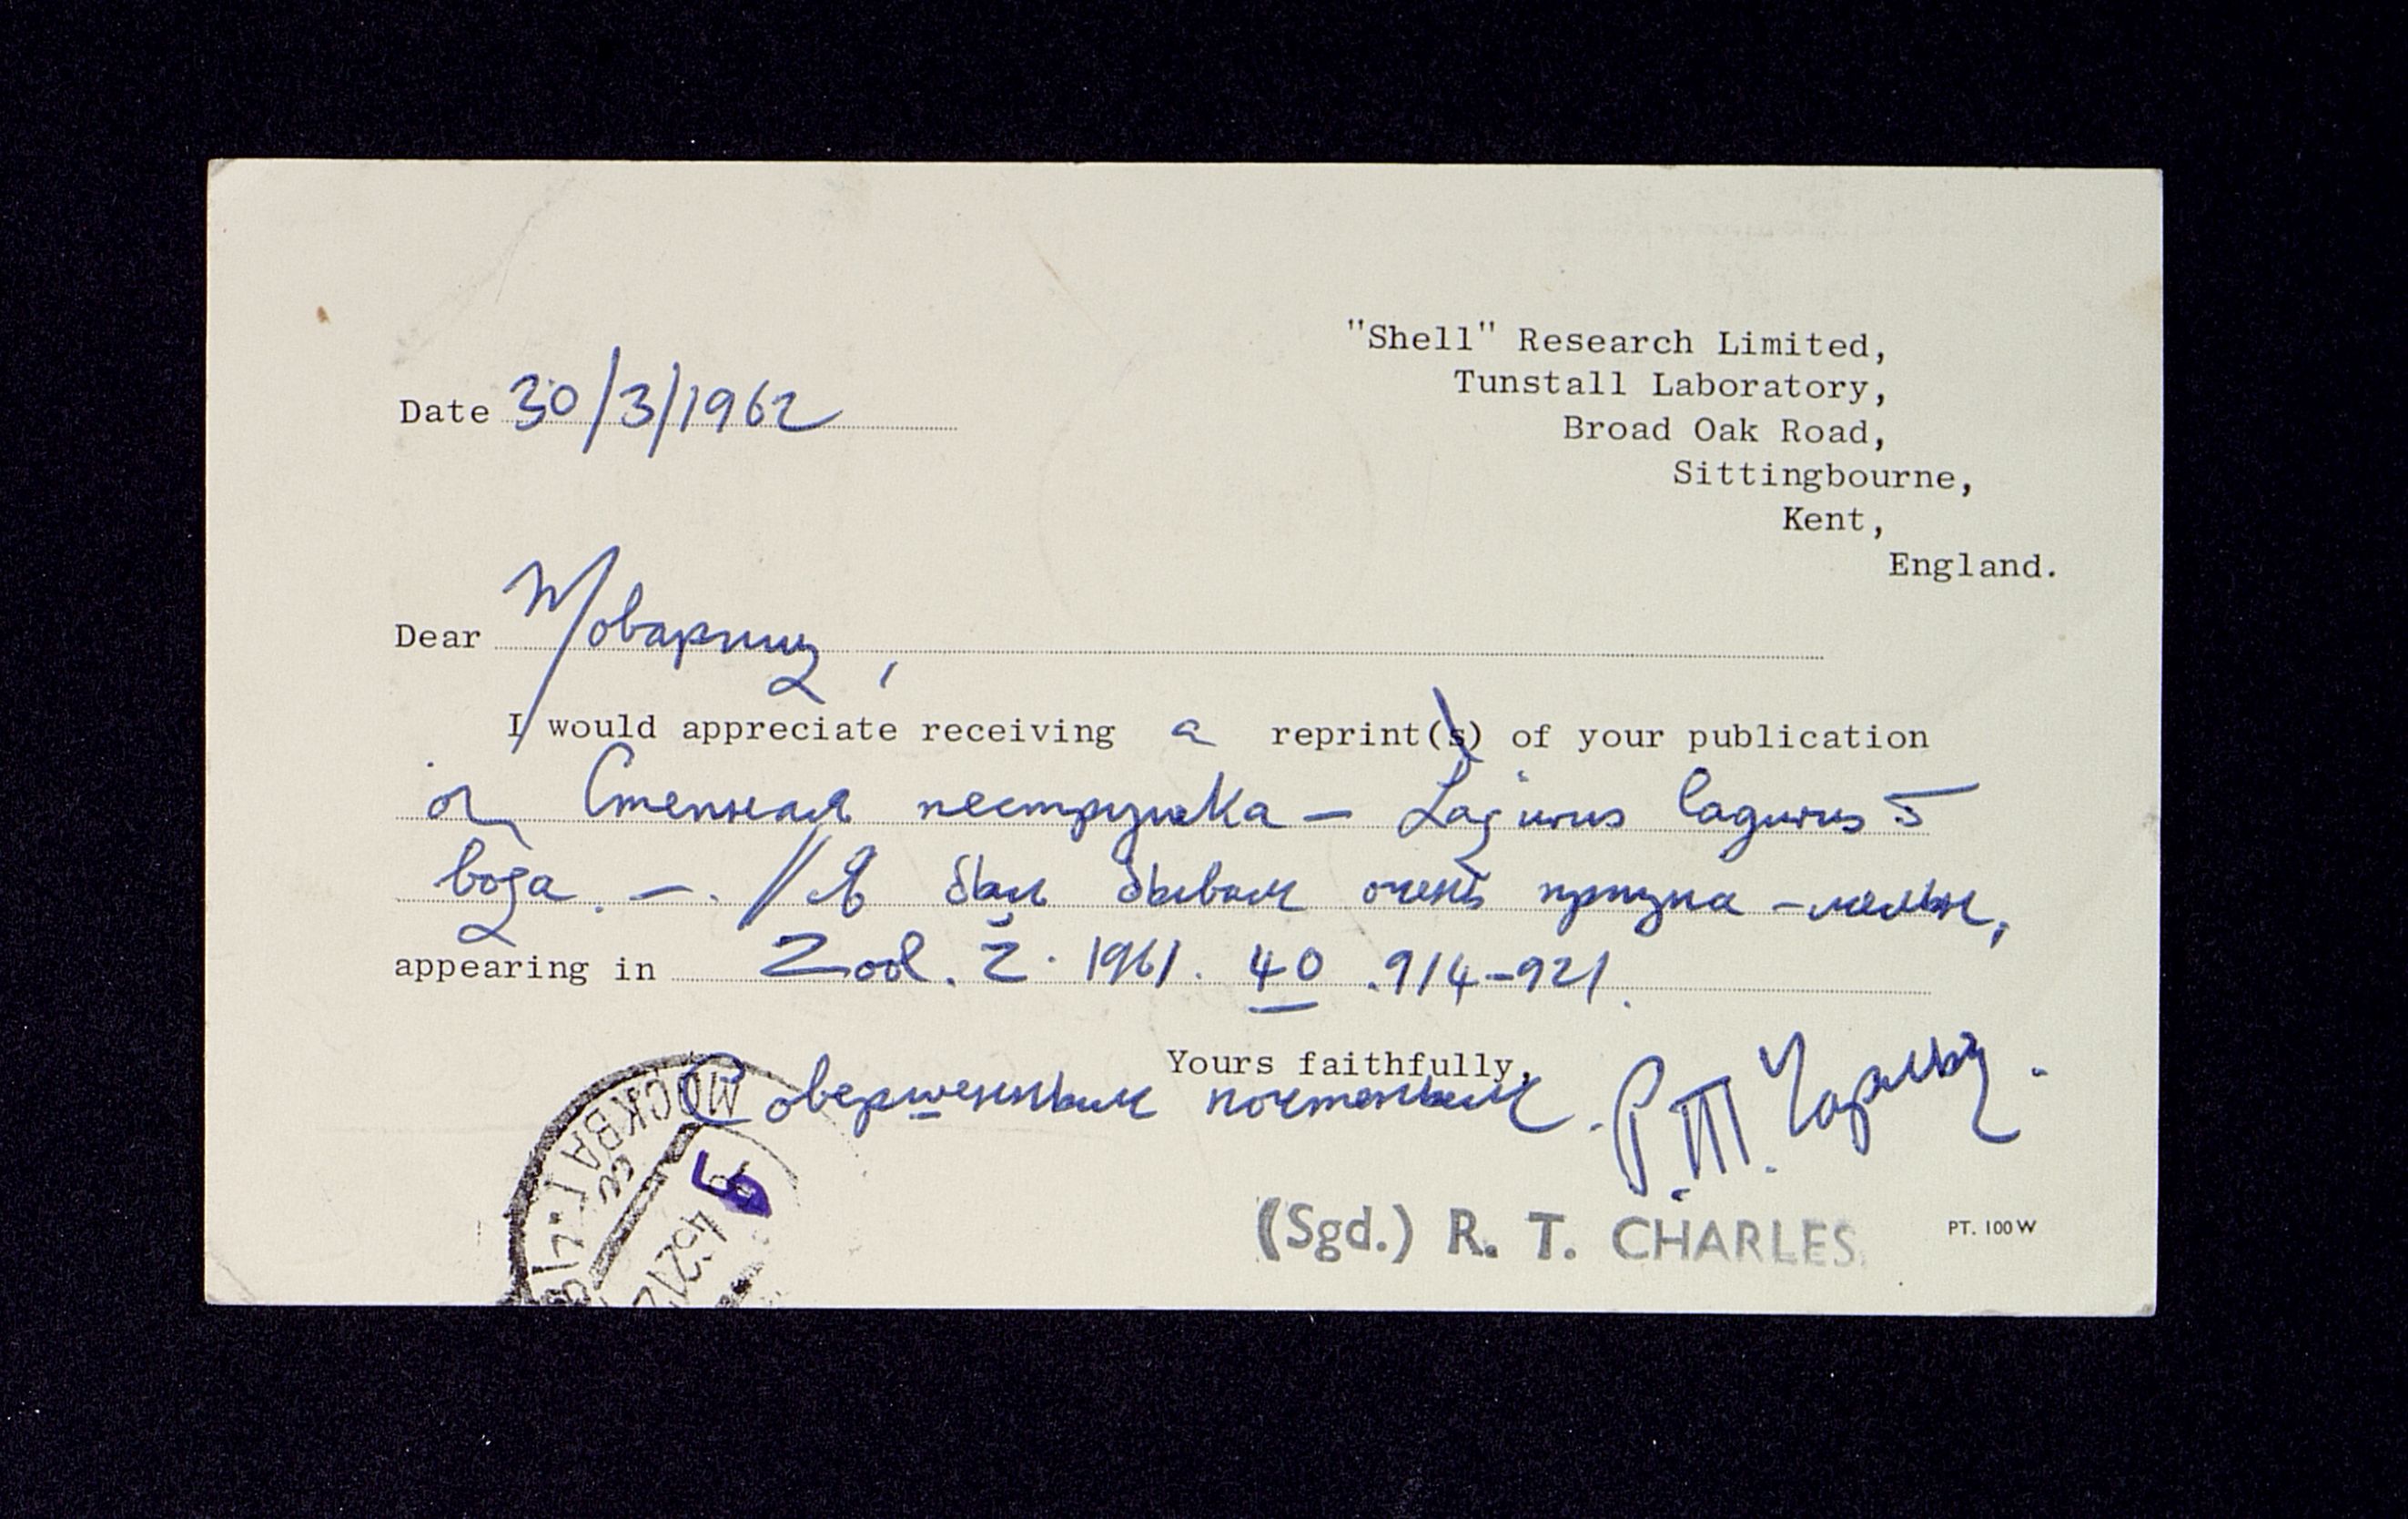 "Shell" Research Limited,
Tunstall Laboratory,
Broad Oak Road,
Sittingbourne,
Kent,
England.
Date 30/3/1962
Dear Товарищ,
I would appreciate receiving a reprint(s) of your publication
Степная пеструшка — Lagurus lagurus
вода. —. // Я был бывал очень
appearing in Zool. Ž. 1961. 40 .914-921.
Yours faithfully,
Совершенным почтеньем. Р. Т. Чарльз.
МОСКВА
(Sgd.) R. T. CHARLES.
PT. 100W